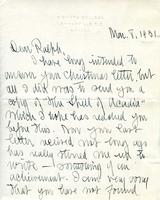 Mar. 8, 1931.
Dear Ralph,
I have long intended to
answer your Christmas letter, but
all I did was to send you a
copy of The Spell of Acadia
which I hope has reached you
before this. Now your last
letter received not long ago
has really stirred me up to
write - something of an
achievement. I am very sorry
that you have not found